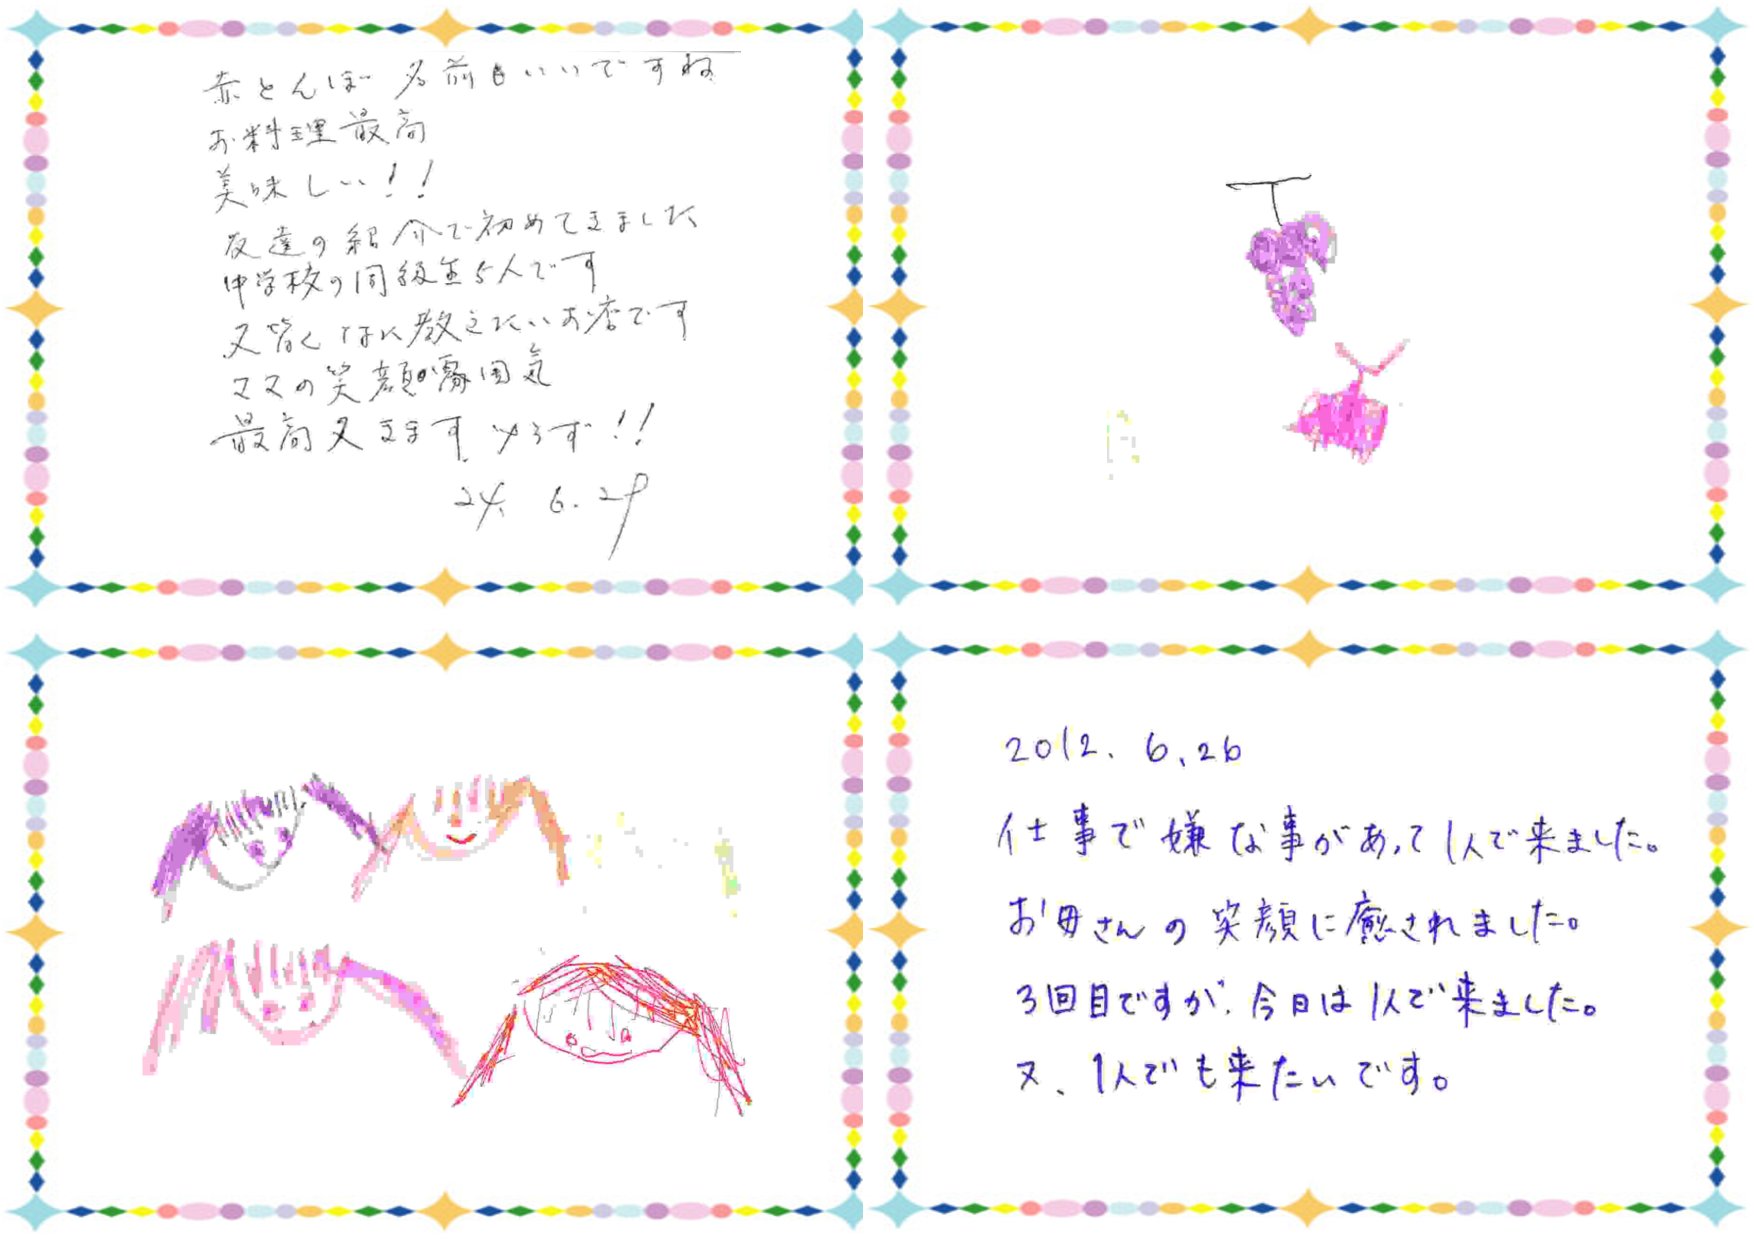 赤とんぼ 名前もいいですね
お料理最高
美味しい!!
友達の紹介で初めてきました
中学校の同級生5人です
又皆んなに教えたいお店です
ママの笑顔 雰囲気
最高又きます 必ず!!
24. 6. 29
2012. 6. 26
仕事で嫌な事があって1人で来ました。
お母さんの笑顔に癒されました。
3回目ですが、今日は1人で来ました。
又、1人でも来たいです。